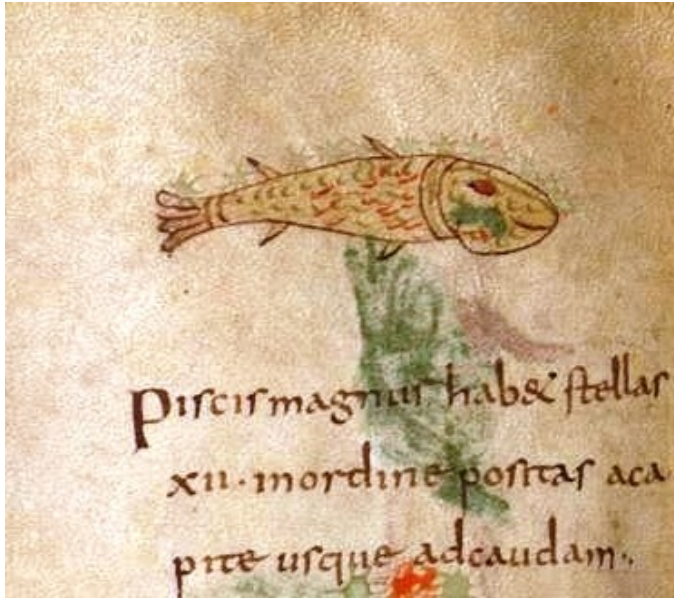 Piscis magnus hab& stellas
xii · inordine positas aca
pite usque adcaudam ·,